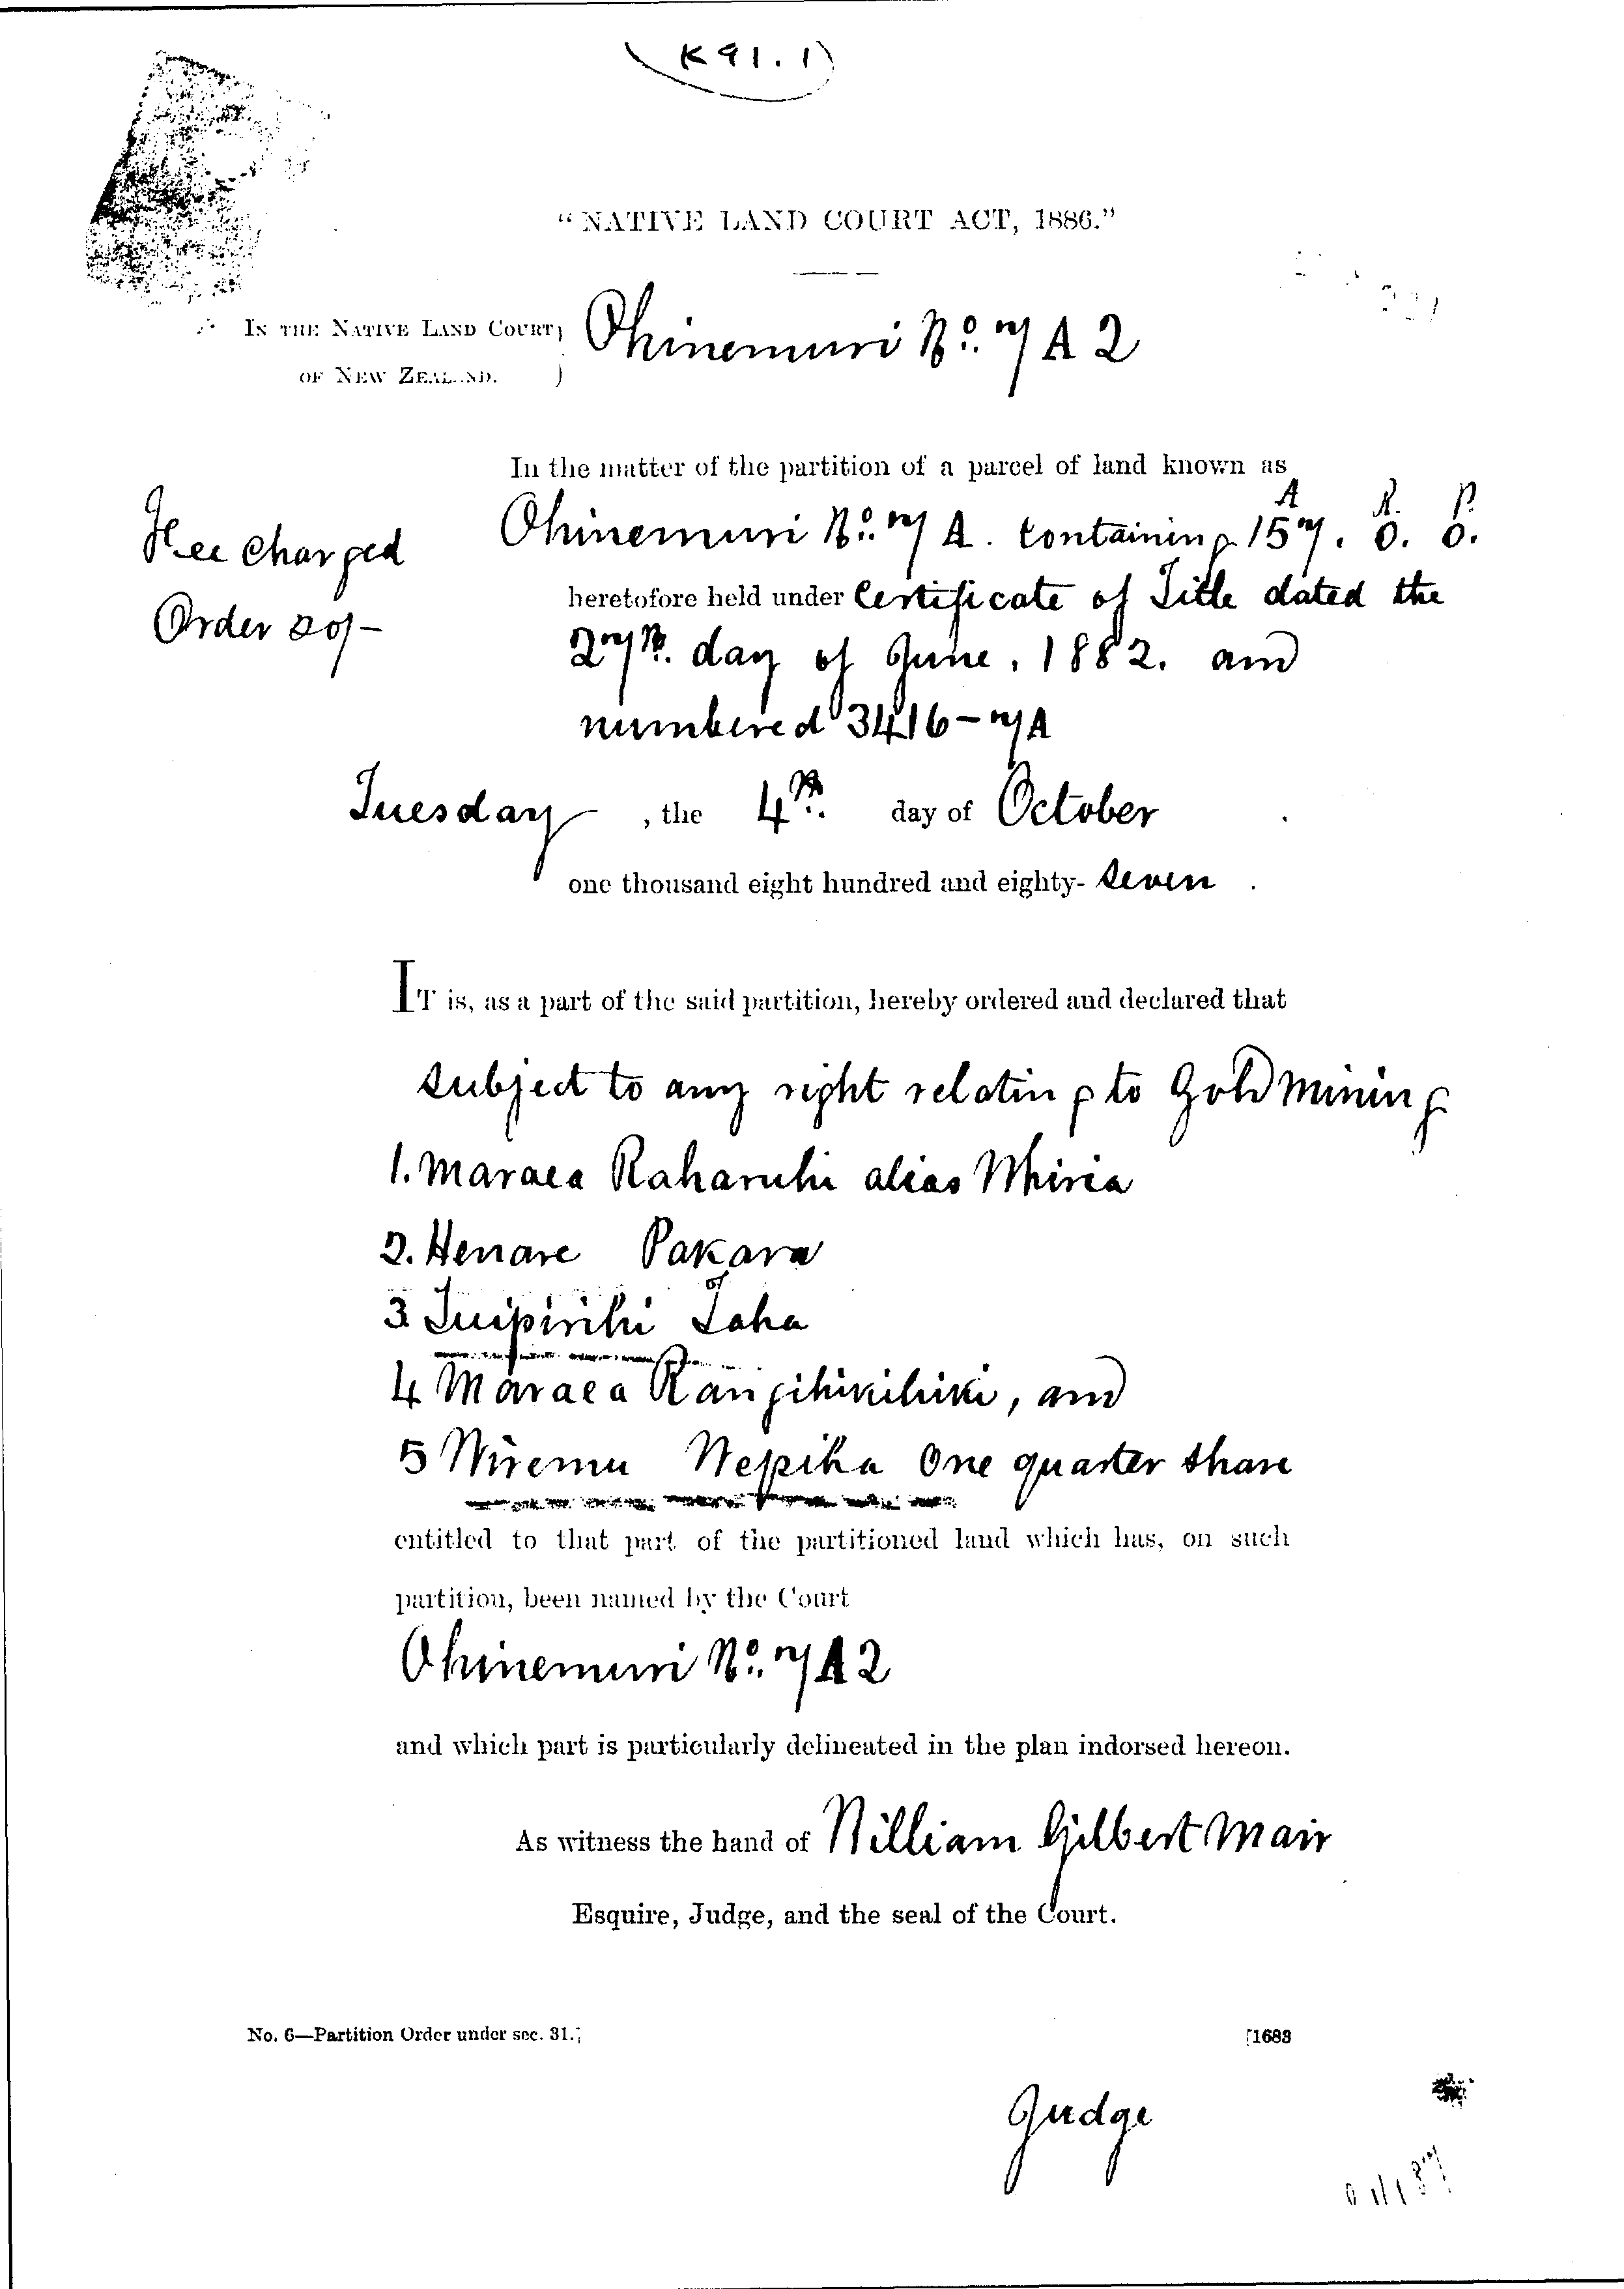 K91.1
"NATIVE LAND COURT ACT, 1886."
IN THE NATIVE LAND COURT
OF NEW ZEALAND.
Ohinemuri No. 7 A 2
In the matter of the partition of a parcel of land known as
A R. P.
Ohinemuri No. 7 A. Containing 157. 0. 0.
Fee Charged
heretofore held under Certificate of Title dated the
Order 20/-
27th. day of June, 1882. and
numbered 3416-7A
Tuesday, the 4th. day of October
one thousand eight hundred and eighty-seven.
IT is, as a part of the said partition, hereby ordered and declared that
subject to any right relating to Gold Mining
1. Maraea Raharuhi alias Whiria
2. Henare Pakara
3 Tuipirihi Taha
4 Maraea Rangihikihiki, and
5 Wiremu Nepiha One quarter share
entitled to that part of the partitioned land which has, on such
partition, been named by the Court
Ohinemuri No. 7A2
and which part is particularly delineated in the plan indorsed hereon.
As witness the hand of William Gilbert Mair
Esquire, Judge, and the seal of the Court.
No. 6—Partition Order under sec. 31.
[1683
Judge